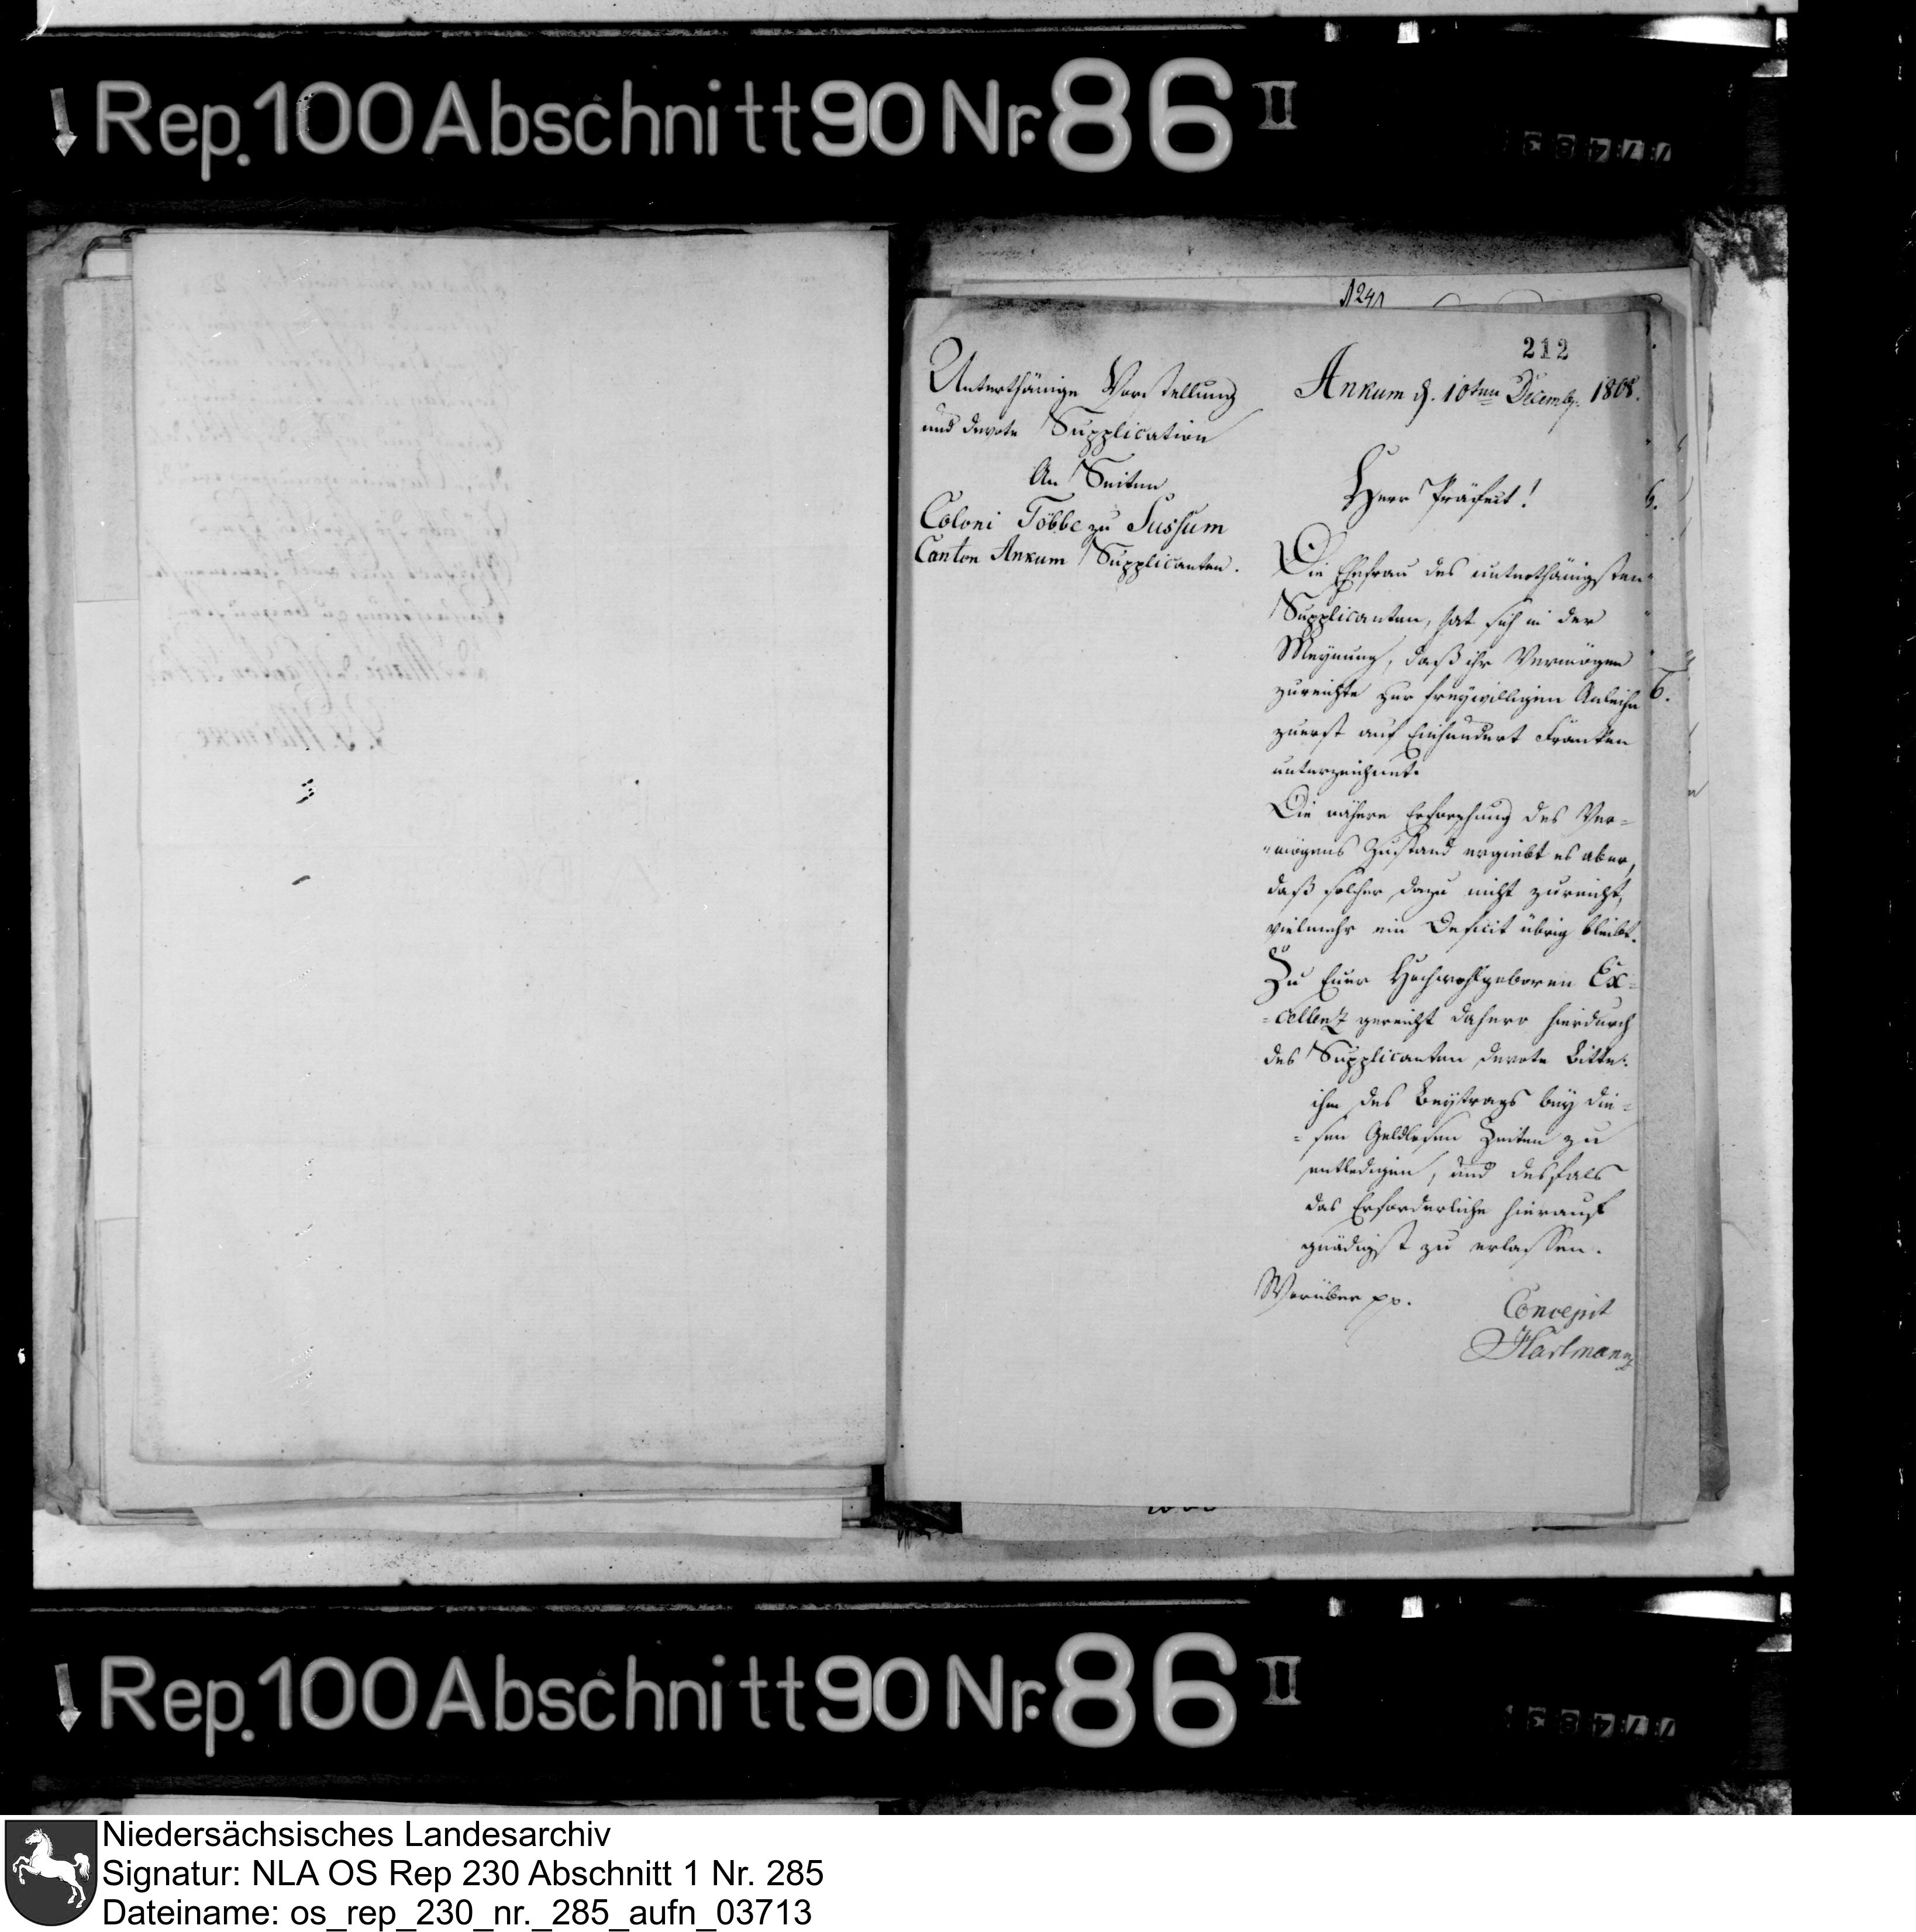 Rep. 100 Abschnitt 90 Nr. 86 II
1241
212
Unterthänige Vorstellung
und devote Supplication
An Seiten
Coloni Többe zu Sussum
Canton Ankum Supplicanten.
Ankum d. 10ten Decemb. 1808.
Herr Präfect!
Die Ehefrau des unterthänigsten
Supplicanten, hat sich in der
Meynung, daß ihr Vermögen
zureichte zur freywilligen Anleihe
zuerst auf Einhundert Franken
unterzeichnet.
Die nähere Erforschung des Ver=
=mögens Zustand ergiebt es aber,
daß solcher dazu nicht zureicht,
vielmehr ein Deficit übrig bleibt.
Zu Euer Hochwohlgeboren Ex=
=cellenz gereicht dahero hierdurch
des Supplicanten devote Bitte:
ihm des Beytrags bey die=
=sen Geldlosen Zeiten zu
entledigen, und desfals
das Erforderliche hierauf
gnädigst zu erlassen.
Worüber pp.
Concepit
Hartmann
Rep. 100 Abschnitt 90 Nr. 86 II
Niedersächsisches Landesarchiv
Signatur: NLA OS Rep 230 Abschnitt 1 Nr. 285
Dateiname: os_rep_230_nr._285_aufn_03713